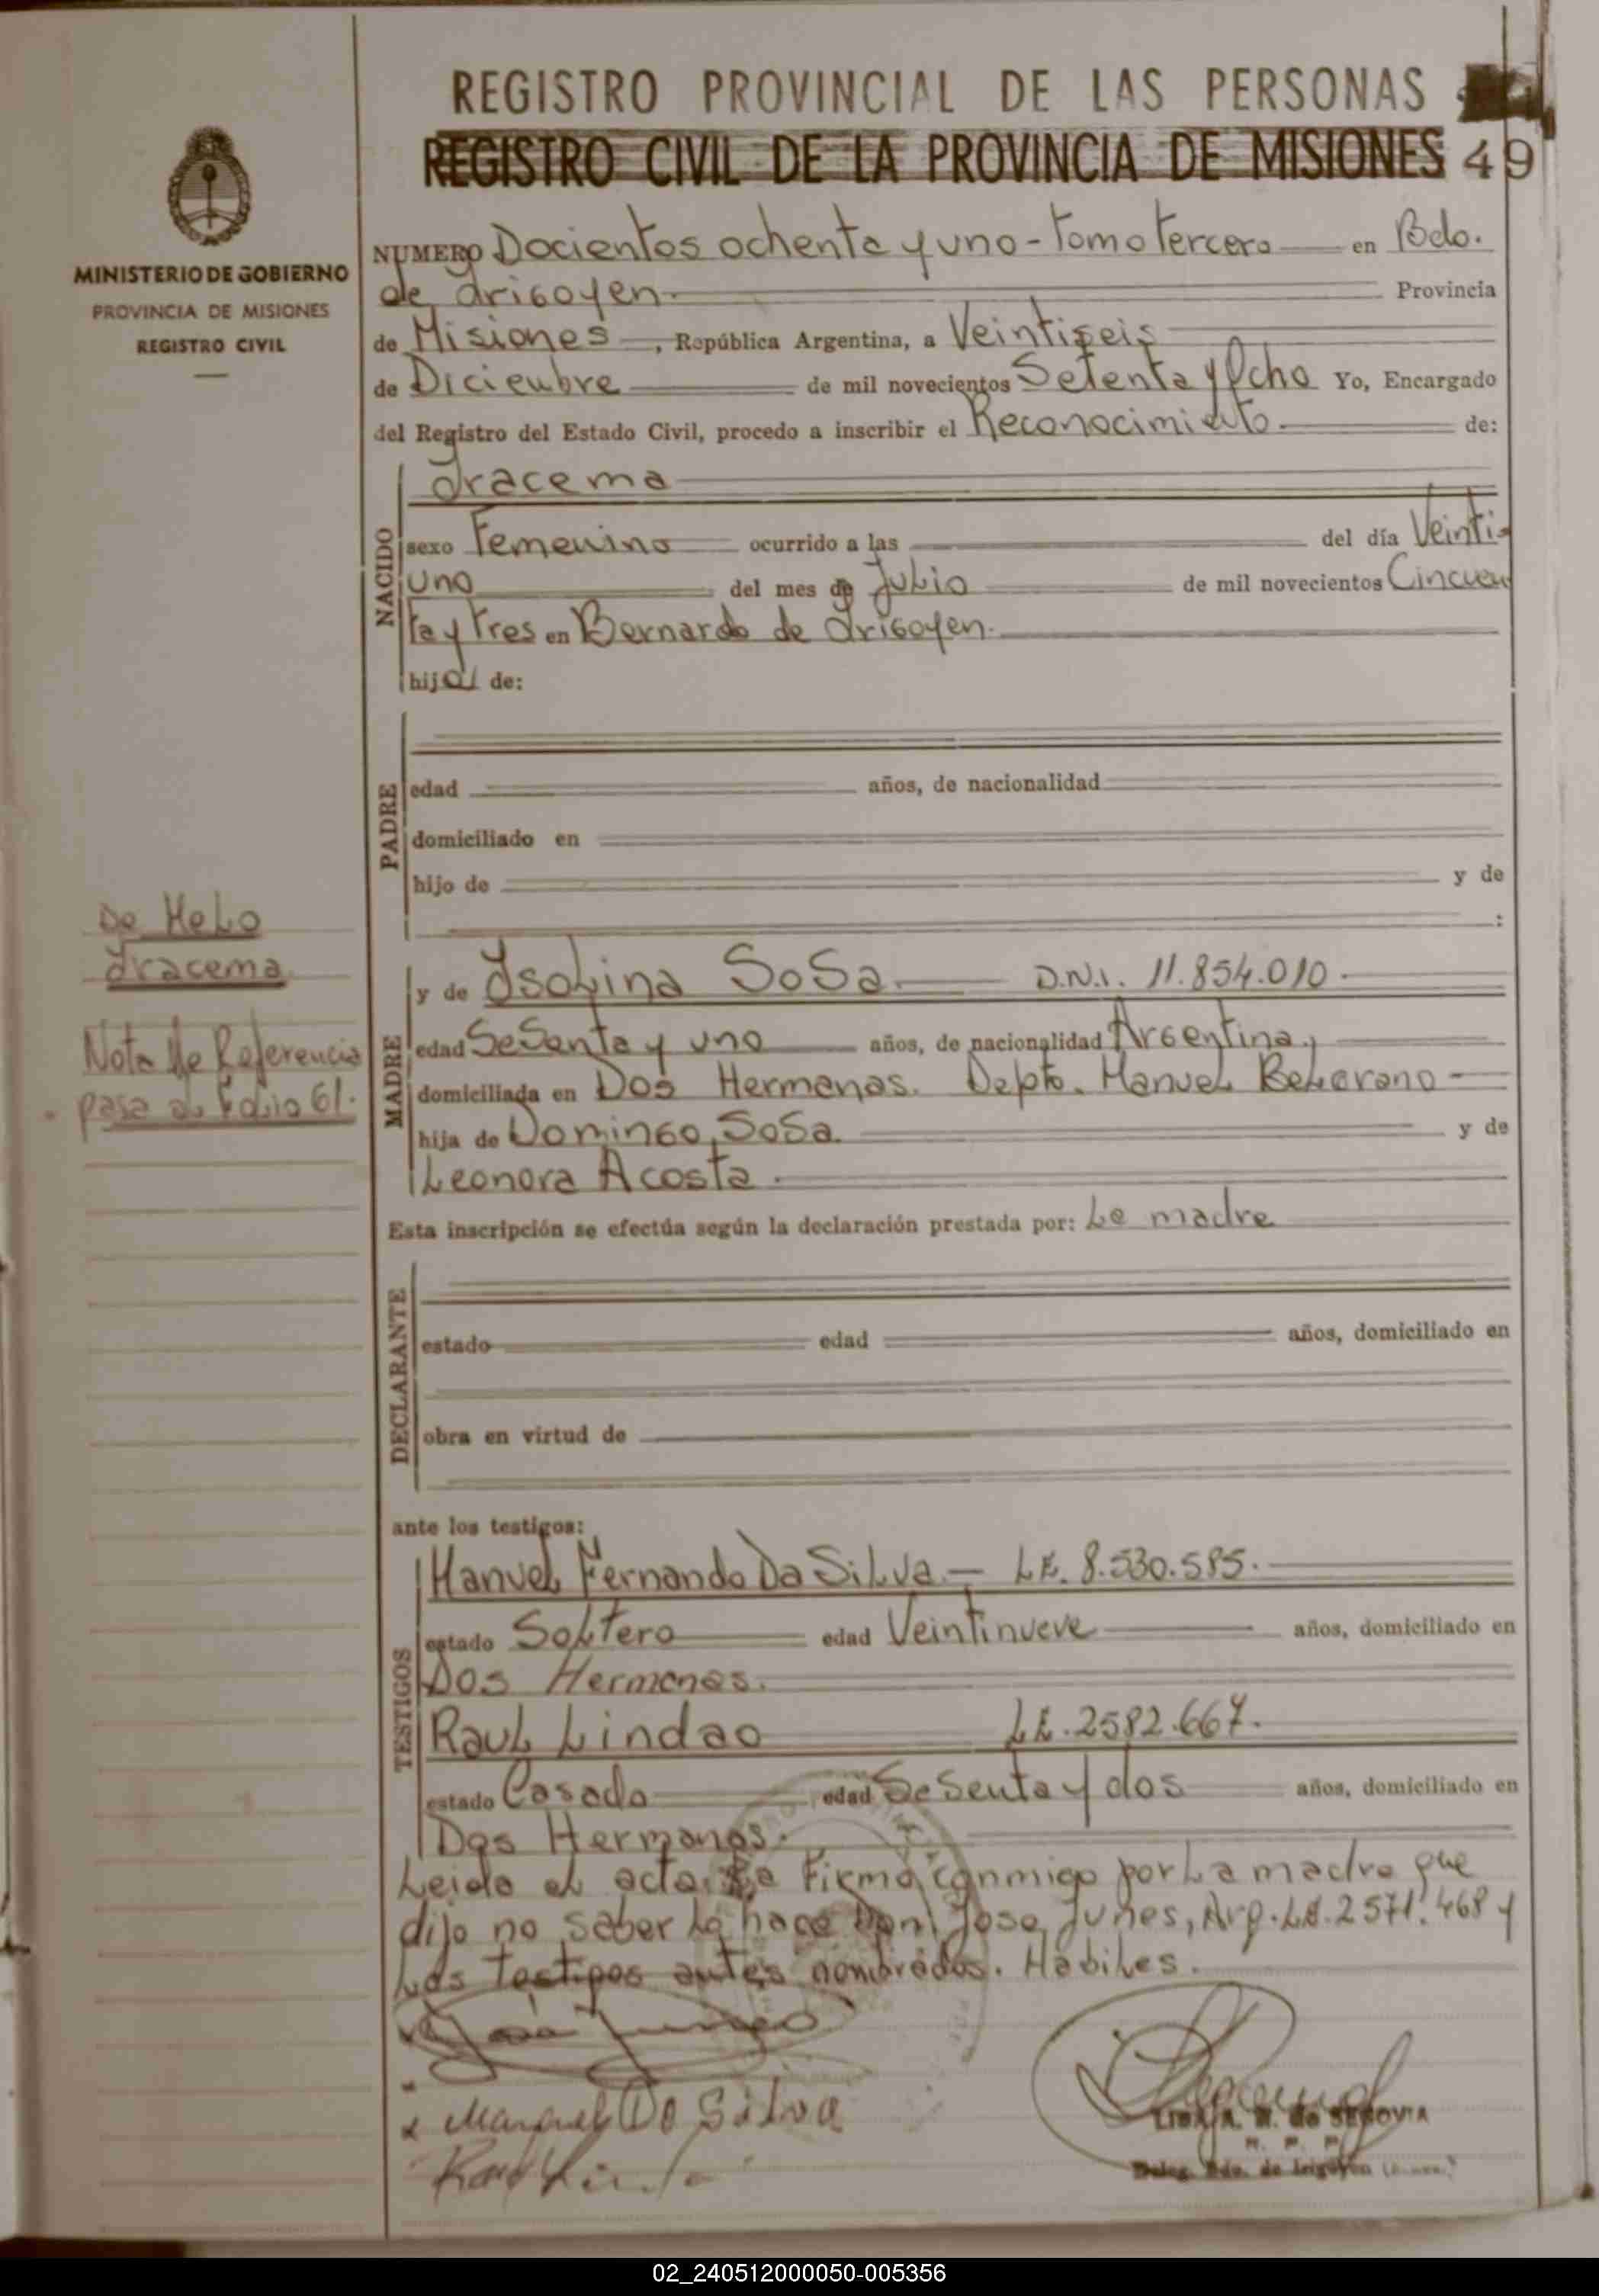 REGISTRO PROVINCIAL DE LAS PERSONAS
REGISTRO CIVIL DE LA PROVINCIA DE MISIONES 49
MINISTERIO DE GOBIERNO
PROVINCIA DE MISIONES
REGISTRO CIVIL
NUMERO Docientos ochenta y uno - Tomo Tercero en Bdo.
de Irigoyen. Provincia
de Misiones, República Argentina, a Veintiseis
de Diciembre de mil novecientos Setenta y Ocho Yo, Encargado
del Registro del Estado Civil, procedo a inscribir el Reconocimiento. de:
NACIDO
Iracema
sexo Femenino ocurrido a las del día Veinti-
uno del mes de Julio de mil novecientos Cincuen
ta y Tres en Bernardo de Irigoyen.
hija de:
PADRE
edad años, de nacionalidad
domiciliado en
hijo de y de
:
De Melo
Iracema
Nota de Referencia
pasa al Folio 61.
MADRE
y de Isolina Sosa. D.N.I. 11.854.010.
edad Sesenta y uno años, de nacionalidad Argentina,
domiciliada en Dos Hermanas. Depto. Manuel Belgrano
hija de Domingo Sosa. y de
Leonora Acosta.
Esta inscripción se efectúa según la declaración prestada por: La madre
DECLARANTE
estado edad años, domiciliado en
obra en virtud de
ante los testigos:
TESTIGOS
Manuel Fernando Da Silva - L.E. 8.530.585.
estado Soltero edad Veintinueve años, domiciliado en
Dos Hermanas.
Raul Lindao L.E. 2582.667.
estado Casado edad Sesenta y dos años, domiciliado en
Dos Hermanas.
Leida el acta, la Firma conmigo por La madre que
dijo no saber Lo hace Don Jose Junes, Arg. L.E. 2571.468 y
Los Testigos antes nombrados. Habiles.
Manuel Da Silva
de SEGOVIA
Deleg. Bdo. de Irigoyen
02_240512000050-005356